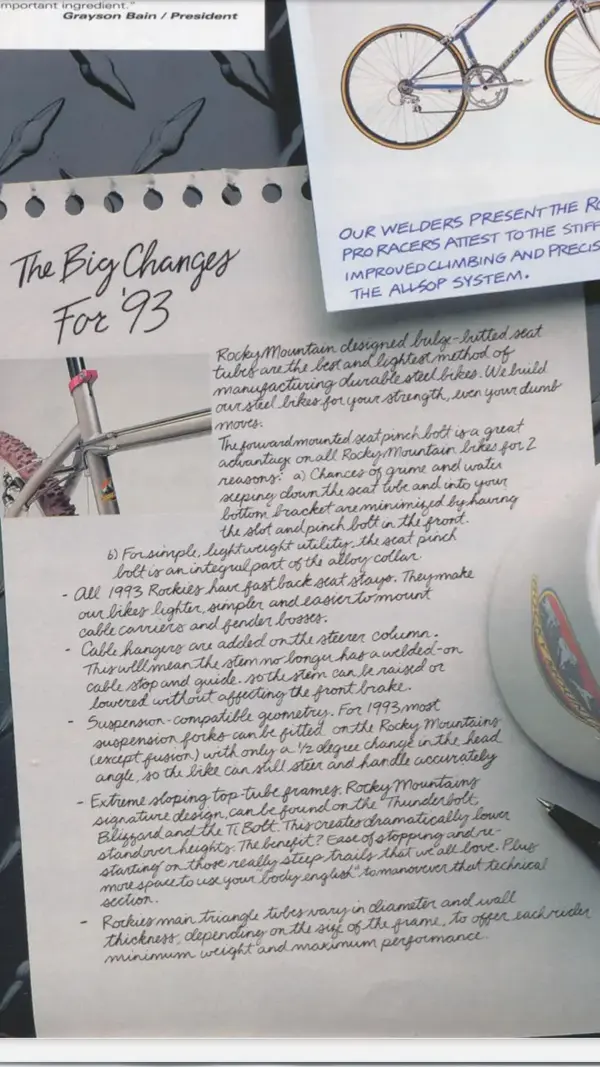 mportant ingredient."
Grayson Bain / President
OUR WELDERS PRESENT THE RO
PRO RACERS ATTEST TO THE STIFF
IMPROVED CLIMBING AND PRECIS
THE ALLSOP SYSTEM.
The Big Changes
For '93
Rocky Mountain designed bulge-butted seat
tubes are the best and lightest method of
manufacturing durable steel bikes. We build
our steel bikes for your strength, even your dumb
moves.
The forward mounted seat pinch bolt is a great
advantage on all Rocky Mountain bikes for 2
reasons: a) Chances of grime and water
seeping down the seat tube and into your
bottom bracket are minimized by having
the slot and pinch bolt in the front.
b) For simple, lightweight utility, the seat pinch
bolt is an integral part of the alloy collar.
- All 1993 Rockies have fast back seat stays. They make
our bikes lighter, simpler and easier to mount
cable carriers and fender bosses.
- Cable hangers are added on the steerer column.
This will mean the stem no longer has a welded-on
cable stop and guide. so the stem can be raised or
lowered without affecting the front brake.
- Suspension-compatible geometry. For 1993 most
suspension forks can be fitted on the Rocky Mountains
(except fusion) with only a 1/2 degree change in the head
angle, so the bike can still steer and handle accurately
- Extreme sloping top-tube frames. Rocky Mountains
signature design, can be found on the "Thunderbolt,
Blizzard and the Ti Bolt. This creates dramatically lower
standover heights. The benefit? Ease of stopping and re-
starting on those really steep trails that we all love. Plus
more space to use your "body english" to manoever that technical
section.
- Rockies main triangle tubes vary in diameter and wall
thickness, depending on the size of the frame, to offer each rider
minimum weight and maximum performance.